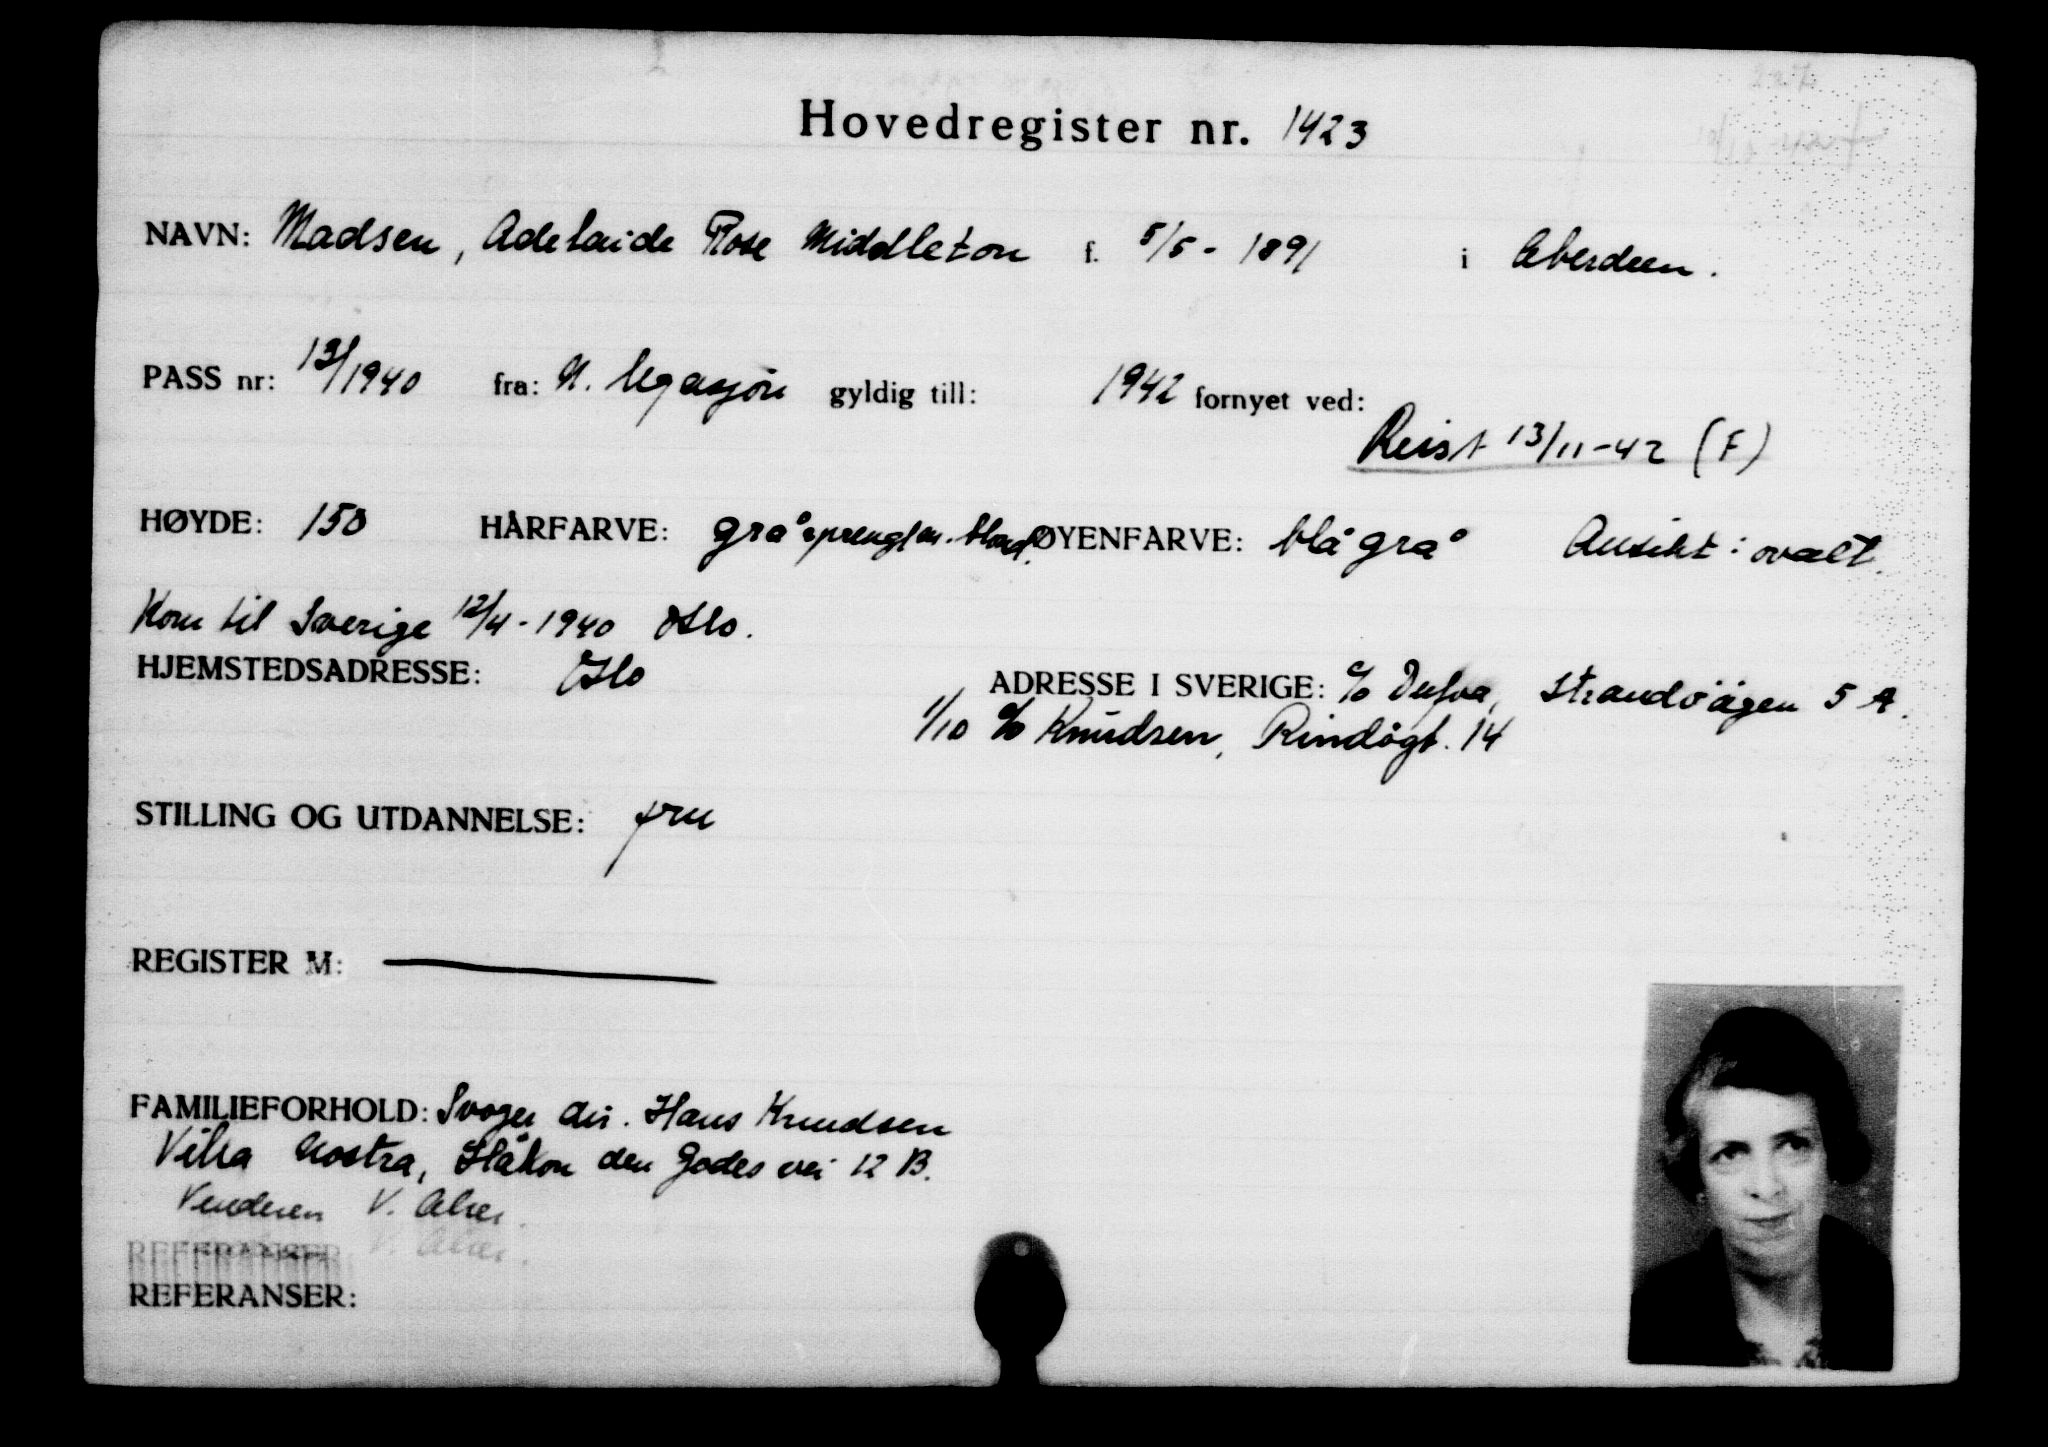 Hovedregister nr. 1423
NAVN: Madsen, Adelaide Rose Middleton f. 5/5-1891 i Aberdeen.
PASS nr: 13/1940 fra: N. legasjon gyldig till: 1942 fornyet ved:
Reist 13/11-42 (F)
HØYDE: 150 HÅRFARVE: gråsprengt m. blond. ØYENFARVE: blågrå Ansikt: ovalt.
Kom til Sverige 12/4-1940 Oslo.
HJEMSTEDSADRESSE: Oslo ADRESSE I SVERIGE: c/o Dufva, Strandvägen 5 A.
1/10 c/o Knudsen, Rindögt. 14
STILLING OG UTDANNELSE: fru
REGISTER M:
FAMILIEFORHOLD: Svoger dir. Hans Knudsen
Villa Nostra, Håkon den Godes vei 12 B.
Venderen V. Aker.
V. Aker.
REFERANSER
REFERANSER: